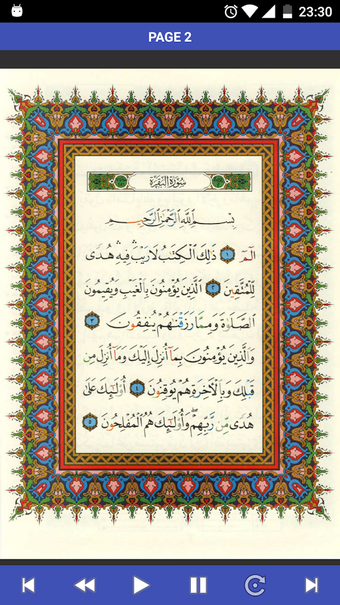 23:30
PAGE 2
سُورَةُ الْبَقَرَةِ
بِسْمِ اللَّهِ الرَّحْمَٰنِ الرَّحِيمِ
الٓمٓ ١ ذَٰلِكَ الْكِتَابُ لَا رَيْبَ ۛ فِيهِ ۛ هُدًى
لِلْمُتَّقِينَ ٢ الَّذِينَ يُؤْمِنُونَ بِالْغَيْبِ وَيُقِيمُونَ
الصَّلَوٰةَ وَمِمَّا رَزَقْنَٰهُمْ يُنْفِقُونَ ٣
وَالَّذِينَ يُؤْمِنُونَ بِمَا أُنْزِلَ إِلَيْكَ وَمَا أُنْزِلَ مِنْ
قَبْلِكَ وَبِالْآخِرَةِ هُمْ يُوقِنُونَ ٤ أُولَٰئِكَ عَلَىٰ
هُدًى مِنْ رَبِّهِمْ ۖ وَأُولَٰئِكَ هُمُ الْمُفْلِحُونَ ٥